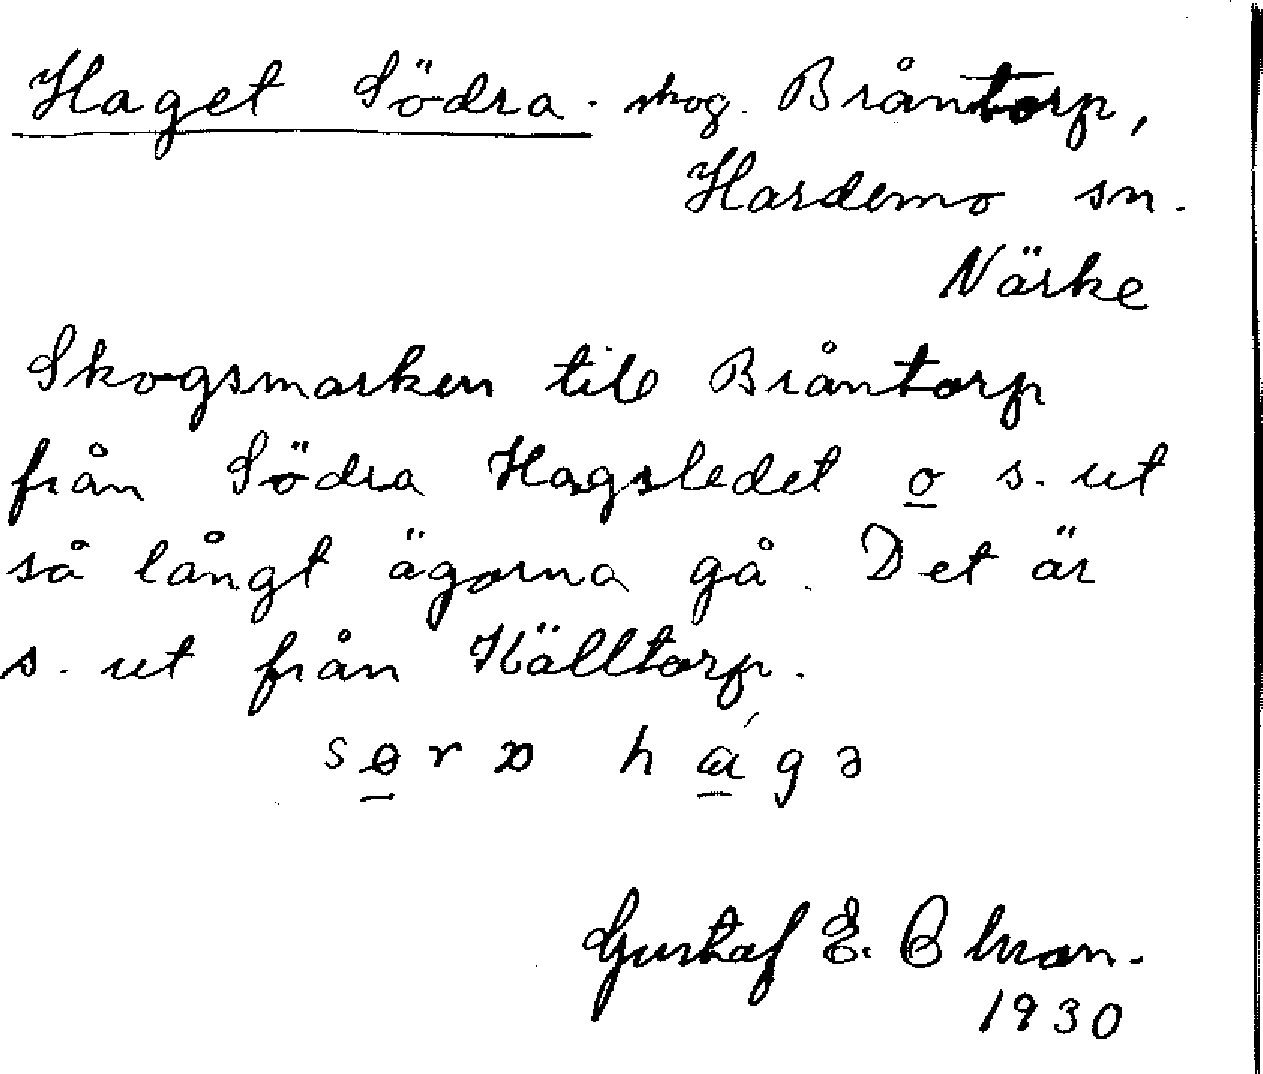 Haget Södra. skog. Bråntorp,
Hardemo sn.
Närke
Skogsmarken till Bråntorp
från Södra Hagsledet o s. ut
så långt ägorna gå. Det är
s. ut från Källtorp.
Gustaf E. Olsson.
1930